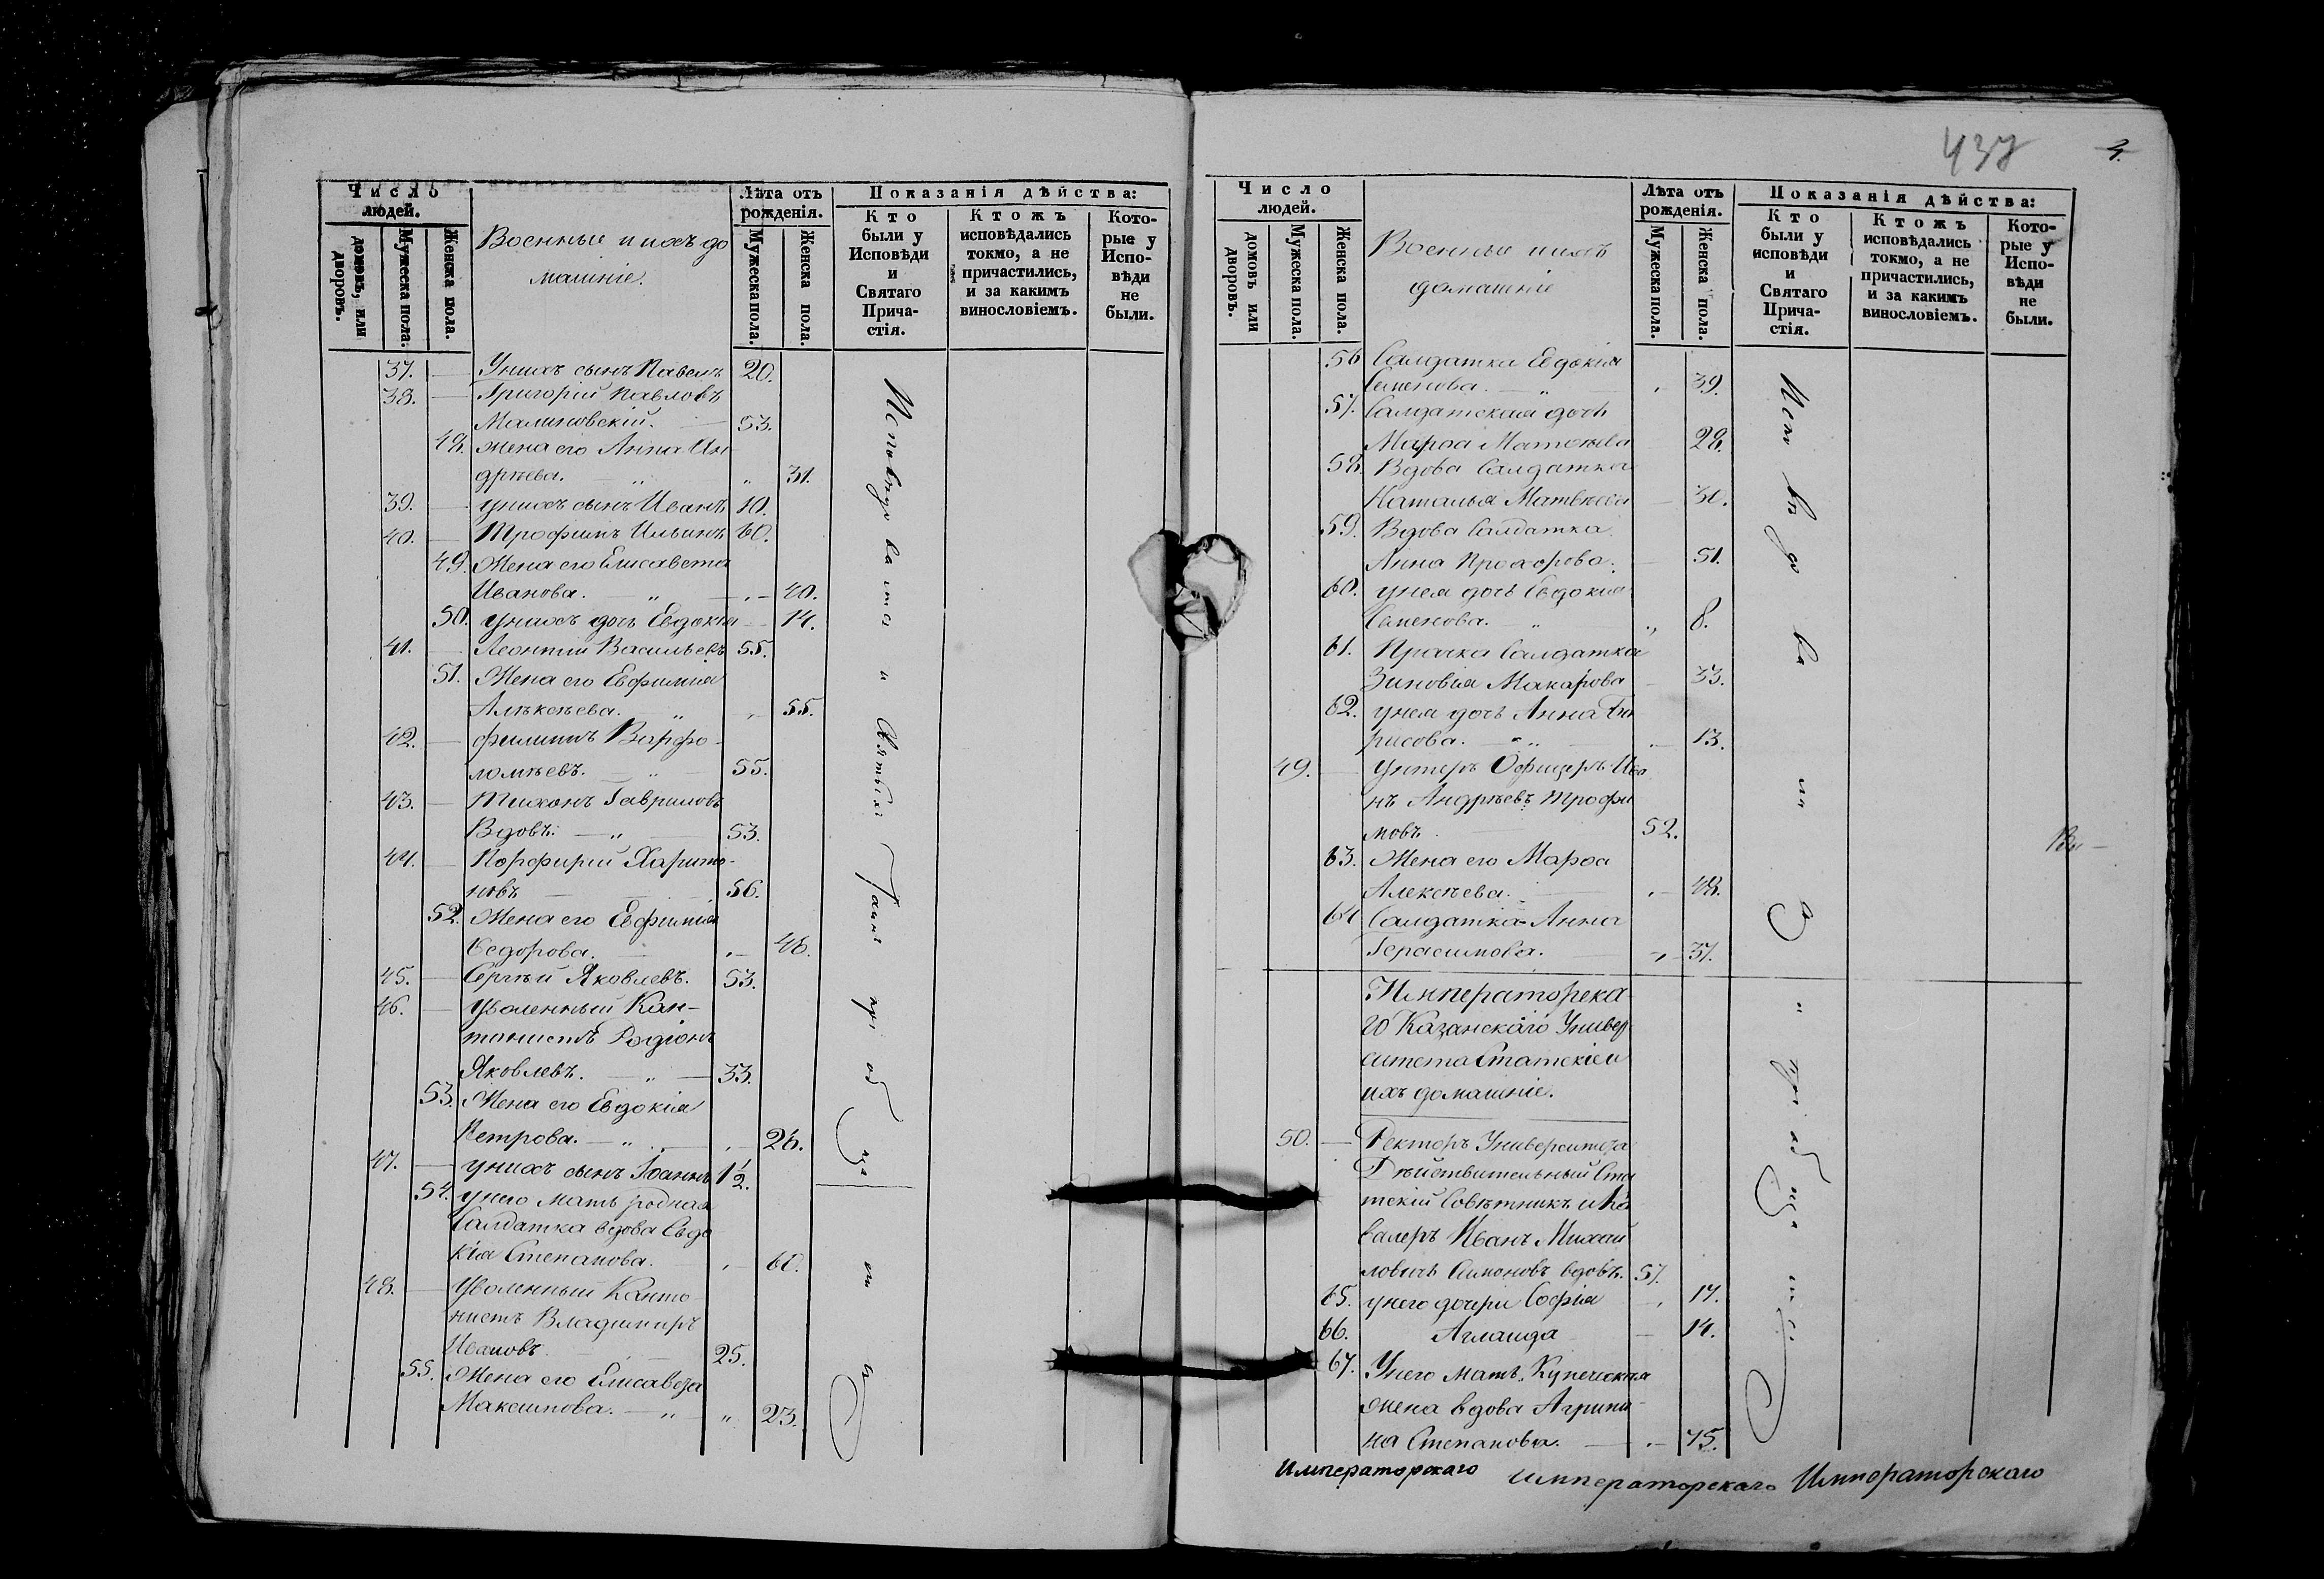 Число людей.
домовъ, или дворовъ.
Мужеска пола.
Женска пола.
Военные и ихъ до
машніе.
Лѣта отъ рожденія.
Мужеска пола.
Женска пола.
Показанія дѣйства:
Кто были у Исповѣди и Святаго Прича-стія.
Ктожъ исповѣдались токмо, а не причастились, и за какимъ винословіемъ.
Кото-рые у Испо-вѣди не были.
37. — У нихъ сынъ Павелъ 20.
38. — Григорій Павловъ
Малиновскій. — 53.
48. Жена его Анна Ан
дрѣева. „ „ 31.
39. — у нихъ сынъ Иванъ 10.
40. — Трофимъ Ильинъ 60.
49. Жена его Елисавета
Иванова. — „ — „ — 40.
50. у нихъ дочь Евдокія — 14.
41. — Леонтій Васильевъ 55.
51. Жена его Евфимія
Алѣксѣева. „ „ 55.
42. — Филиппъ Варфо-
ломѣевъ. — „ — 55.
43. — Тихонъ Гавриловъ
Вдовъ. — „ — 53.
44. — Порфирій Харито-
новъ — 56.
52. Жена его Евфимія
Ѳедорова. — „ — 48.
45. — Сергѣй Яковлевъ. 53.
46. — Уволенный Кан-
тонистъ Родіонъ
Яковлевъ. — „ — 33.
53. Жена его Евдокія
Петрова. — „ — „ — 26.
47. — у нихъ сынъ Іоаннъ 1½.
54. у него мать родная
Салдатка вдова Евдо
кія Степанова. „ — 60.
48. — Уволенный Канто
нистъ Владимиръ
Ивановъ. — 25.
55. Жена его Елисавета
Максимова. — „ — „ 23.
Исповѣдовались и Святыхъ Таинъ пріобщались
437
4.
Число людей.
домовъ или дворовъ.
Мужеска пола.
Женска пола.
Военные и ихъ
домашніе
Лѣта отъ рожденія.
Мужеска пола.
Женска пола.
Показанія дѣйства:
Кто были у исповѣди и Святаго Прича-стія.
Ктожъ исповѣдались токмо, а не причастились, и за какимъ винословіемъ.
Кото-рые у Испо-вѣди не были.
56 Салдатка Евдокія
Семенова. — „ „ 39.
57. Салдатская дочь
Марѳа Матвѣева 28.
58. Вдова Салдатка
Наталья Матвѣева — 30.
59. Вдова Салдатка
Анна Прохорова. — 51.
60. у нея дочь Евдокія
Семенова. — „ „ 8.
61. Прачка Салдатка
Зиновія Макарова — 33.
62. у нея дочь Анна Бо
рисова. — „ — 13.
49. — Унтеръ Офицеръ Ива
нъ Андрѣевъ Трофи
мовъ. — 52.
63. Жена его Марѳа
Алексѣева. — „ — 48.
64 Салдатка Анна
Герасимова. — „ — 37.
Императорска
го Казанскаго Универ
ситета Статскіе и
ихъ домашніе.
50. — Ректоръ Университета
Дѣйствительный Ста
тскій Совѣтникъ и Ка
валеръ Иванъ Михай
ловичъ Симоновъ вдовъ. 57.
65. у него дочери Софія — „ 17.
66. Аглаида — 14.
67. У него мать Купеческая
жена вдова Агрипи-
на Степанова. — „ — 75.
Исповѣдва
Императорскаго Императорскаго Императорскаго